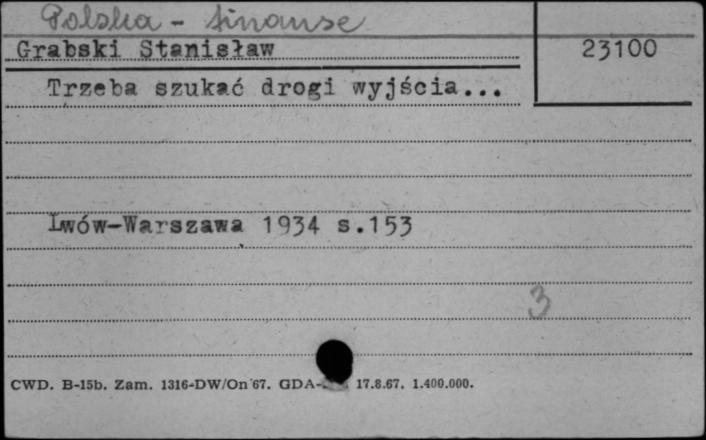 Polska - finanse
Grabski Stanisław
23100
Trzeba szukać drogi wyjścia...
Lwów-Warszawa 1934 s.153
3
CWD. B-15b. Zam. 1316-DW/On 67. GDA- 17.8.67. 1.400.000.